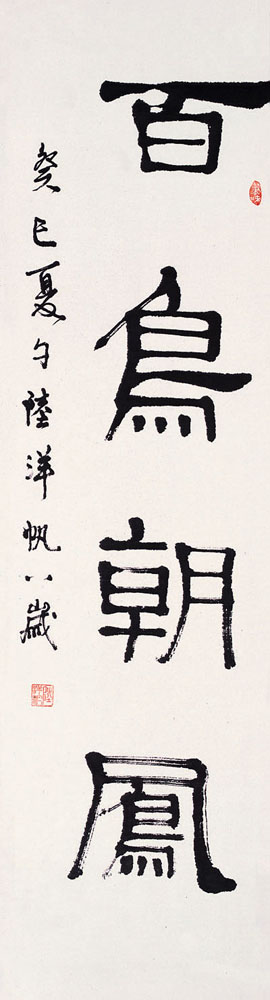 百鳥朝鳳
癸巳夏午陸洋帆八歲